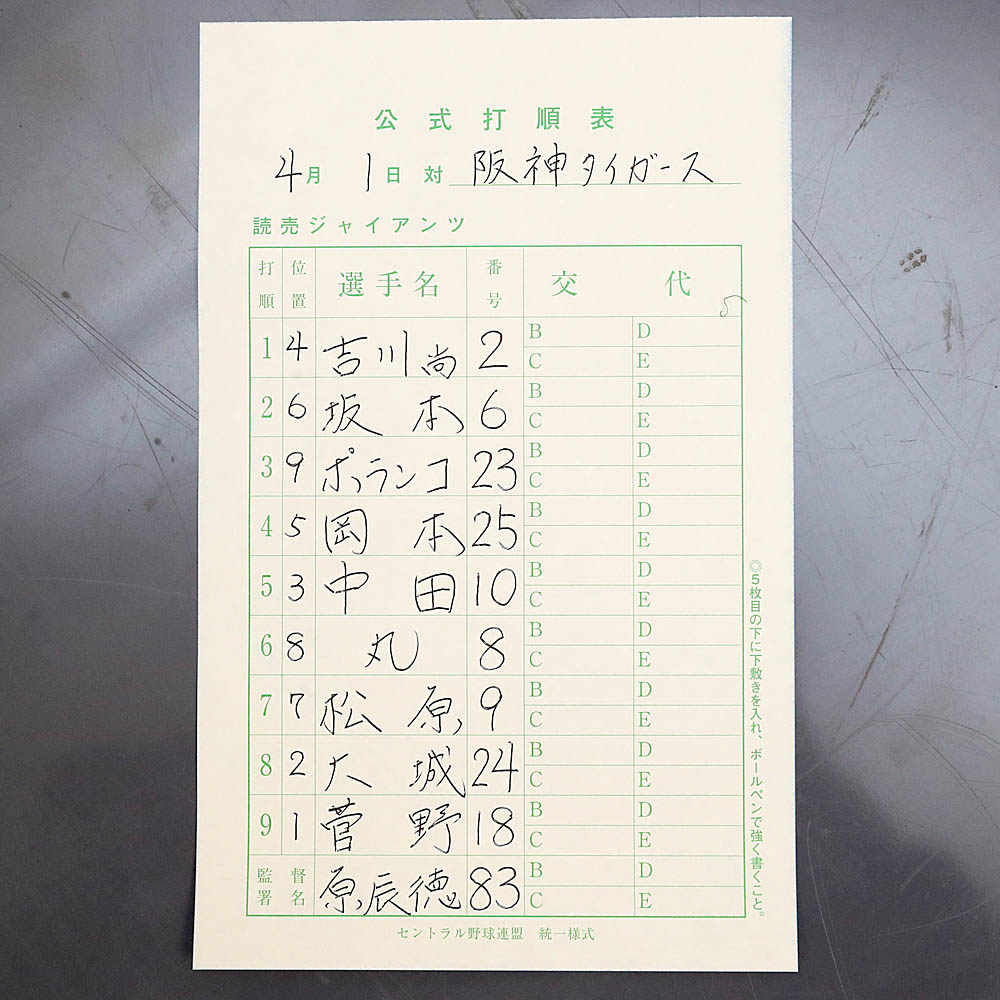 公式打順表
4月 1日 対 阪神タイガース
読売ジャイアンツ
打順 位置 選手名 番号 交代
5
1 4 吉川尚 2 B D C E
2 6 坂本 6 B D C E
3 9 ポランコ 23 B D C E
4 5 岡本 25 B D C E
5 3 中田 10 B D C E
6 8 丸 8 B D C E
7 7 松原 9 B D C E
8 2 大城 24 B D C E
9 1 菅野 18 B D C E
監督署名 原辰徳 83 B D C E
◎5枚目の下に下敷きを入れ、ボールペンで強く書くこと。
セントラル野球連盟 統一様式